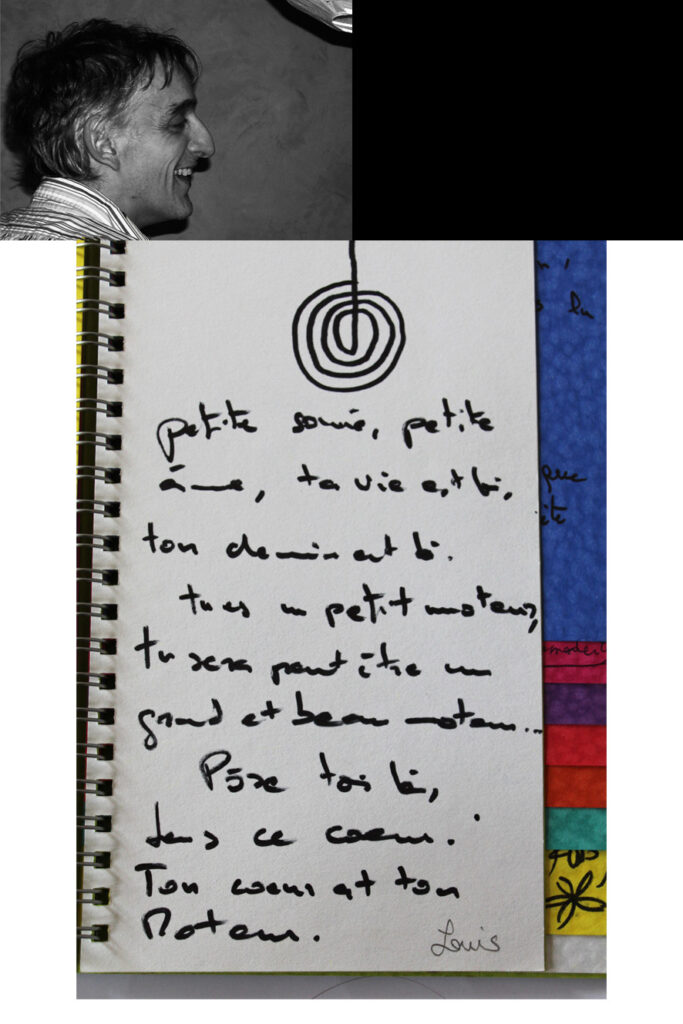 petite petite
âme, ta vie est là,
ton chemin est là.
tu es un petit moteur,
tu seras peut être un
grand et beau moteur...
Pose toi là,
dans ce coeur.
Ton coeur est ton
Moteur.
Louis
que